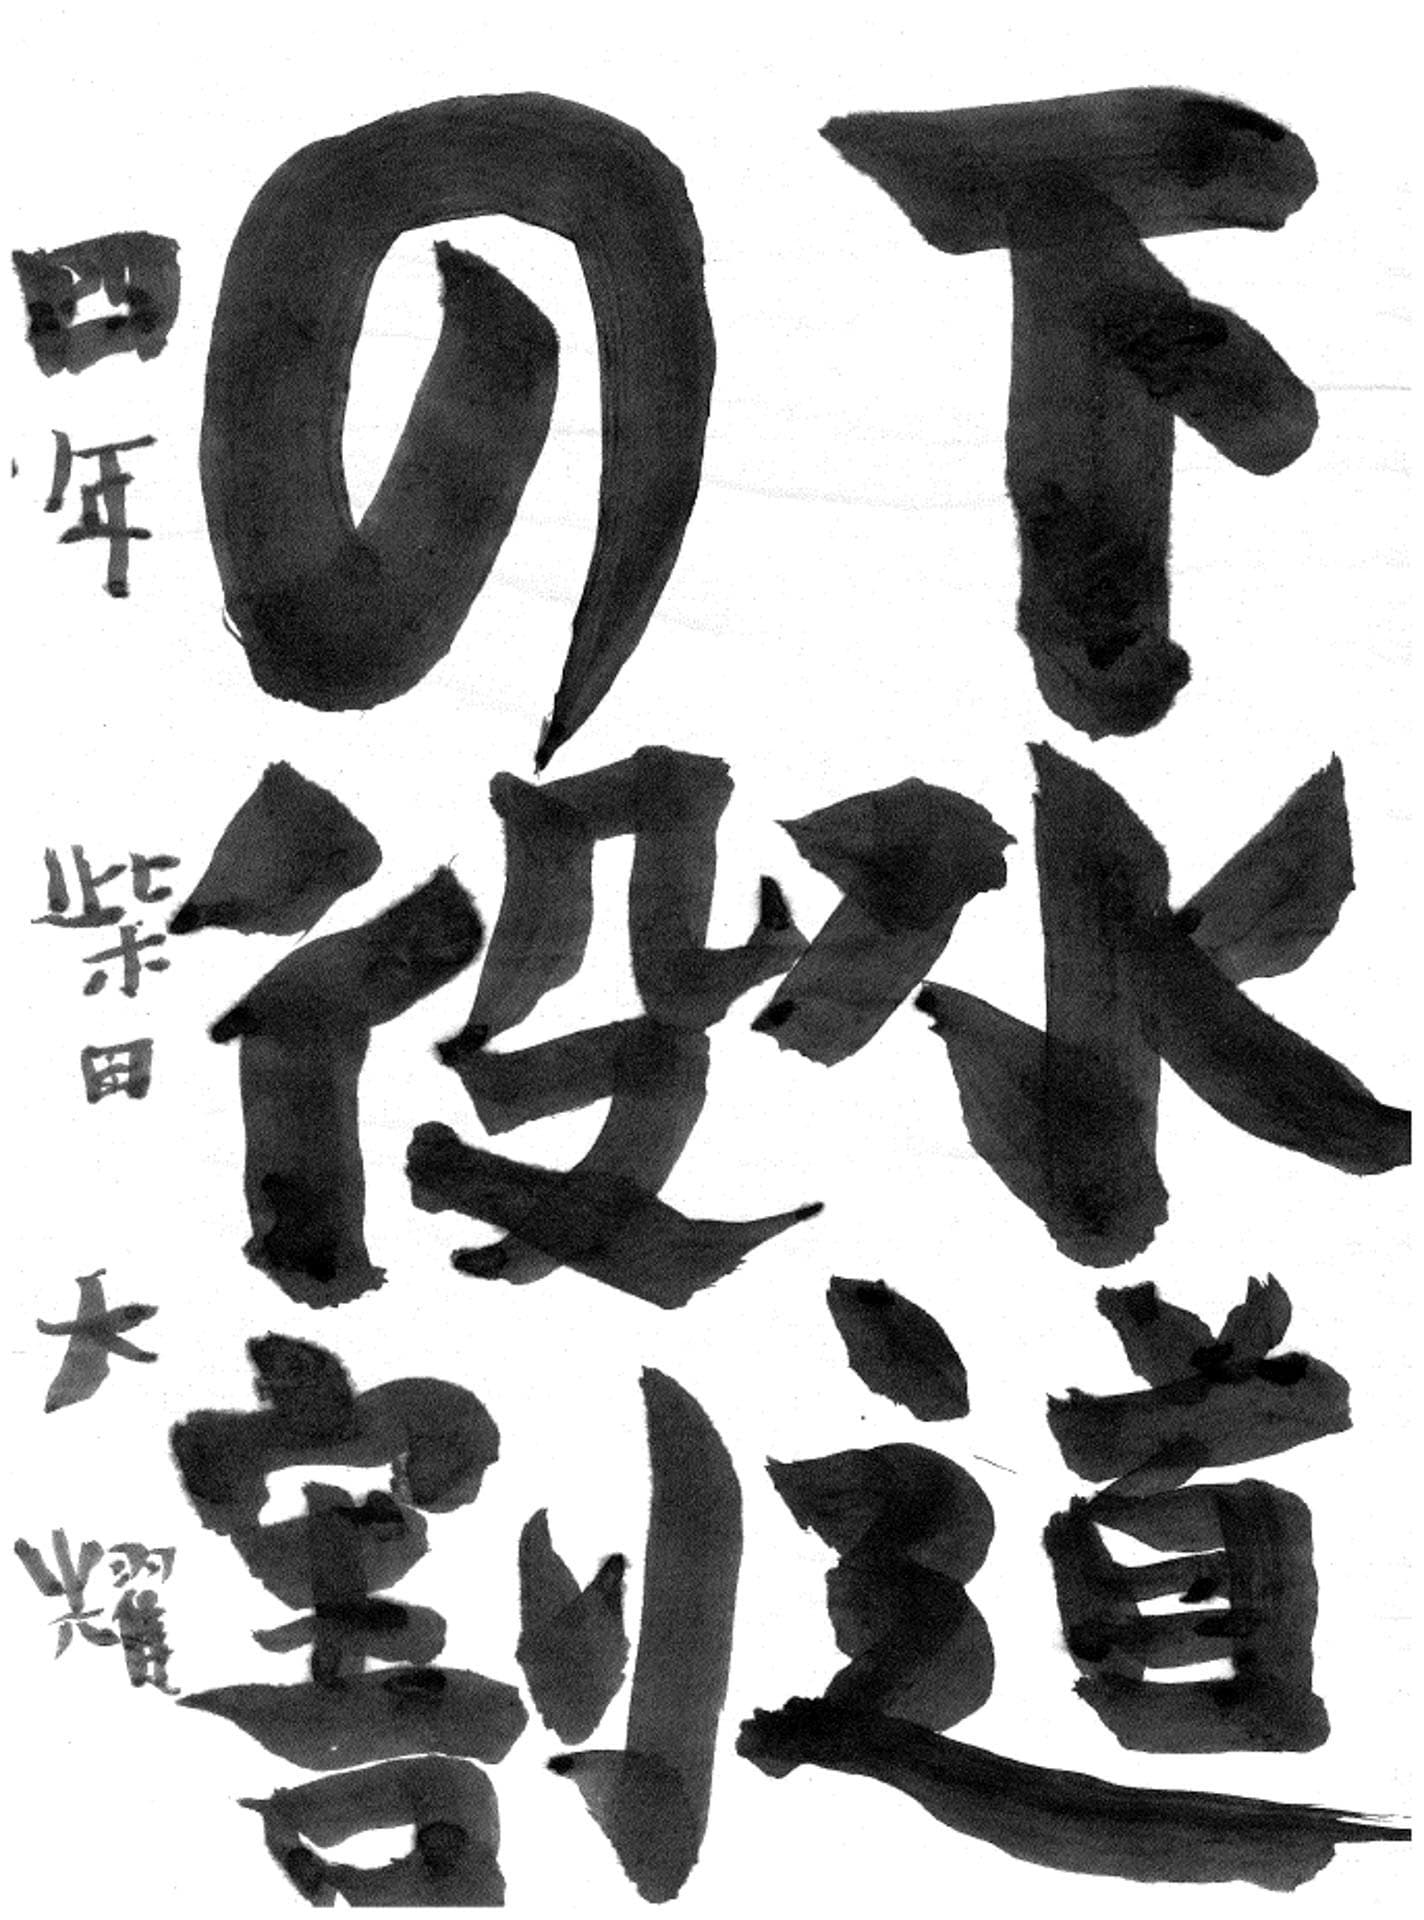 下水道
の役割
四年 柴田 大耀